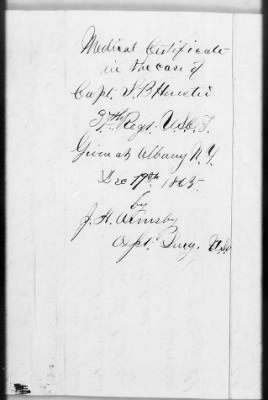 Medical Certificate
in the case of
Capt. J. B.
37th Regt. U.S.C.T.
Given at Albany N.Y.
Dec 19th 1865.
by
J. H. Armsby
Surg. U.S.